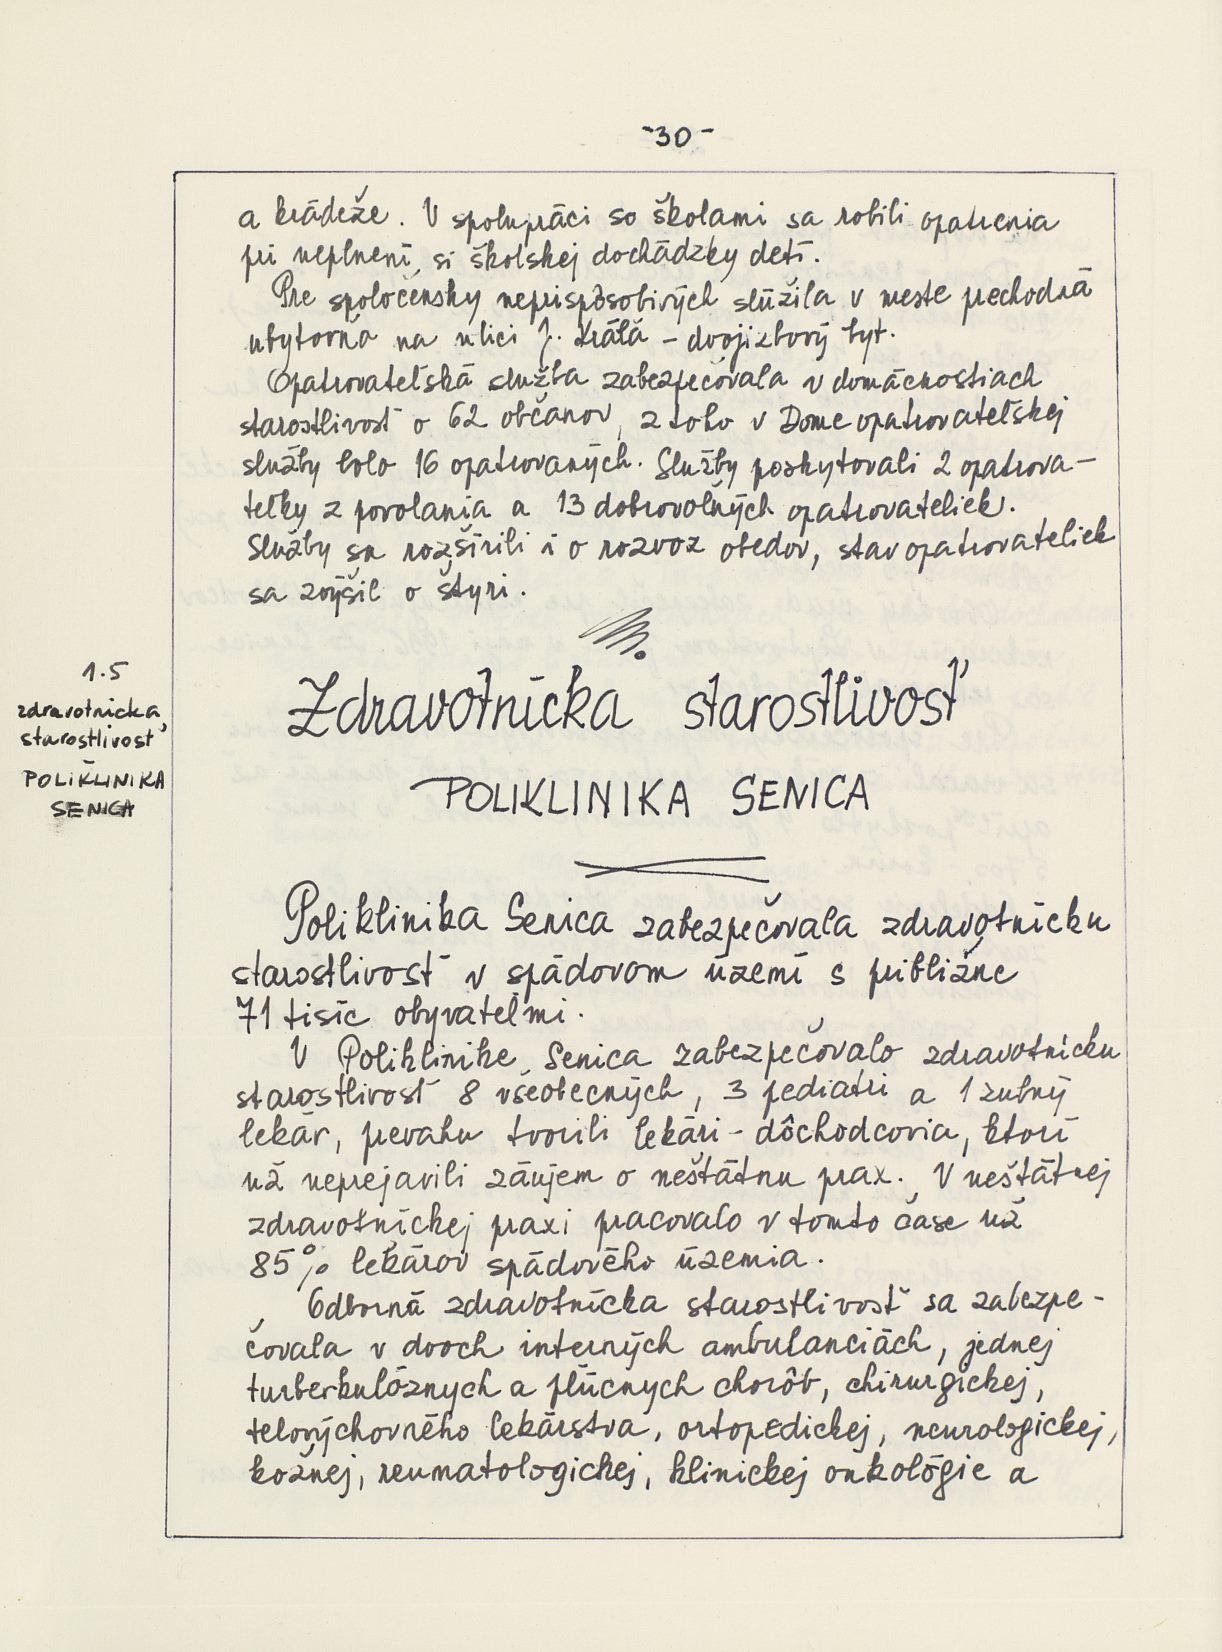 -30-
a krádeže. V spolupráci so školami sa robili opatrenia
pri neplnení si školskej dochádzky detí.
Pre spoločensky neprispôsobivých slúžila v meste prechodná
ubytovňa na ulici J. Kráľa - dvojizbový byt.
Opatrovateľská služba zabezpečovala v domácnostiach
starostlivosť o 62 občanov, z toho v Dome opatrovateľskej
služby bolo 16 opatrovaných. Služby poskytovali 2 opatrova-
teľky z povolania a 13 dobrovoľných opatrovateliek.
Služby sa rozšírili i o rozvoz obedov, stav opatrovateliek
sa zvýšil o štyri.
1.5
zdravotnícka
starostlivosť
-
POLIKLINIKA
SENICA
Zdravotnícka starostlivosť
POLIKLINIKA SENICA
Poliklinika Senica zabezpečovala zdravotnícku
starostlivosť v spádovom území s približne
71 tisíc obyvateľmi.
V Poliklinike Senica zabezpečovalo zdravotnícku
starostlivosť 8 všeobecných, 3 pediatri a 1 zubný
lekár, prevahu tvorili lekári - dôchodcovia, ktorí
už neprejavili záujem o neštátnu prax. V neštátnej
zdravotníckej praxi pracovalo v tomto čase už
85% lekárov spádového územia.
Odborná zdravotnícka starostlivosť sa zabezpe-
čovala v dvoch interných ambulanciách, jednej
turberkulóznych a pľúcnych chorôb, chirurgickej,
telovýchovného lekárstva, ortopedickej, neurologickej,
kožnej, reumatologickej, klinickej onkológie a